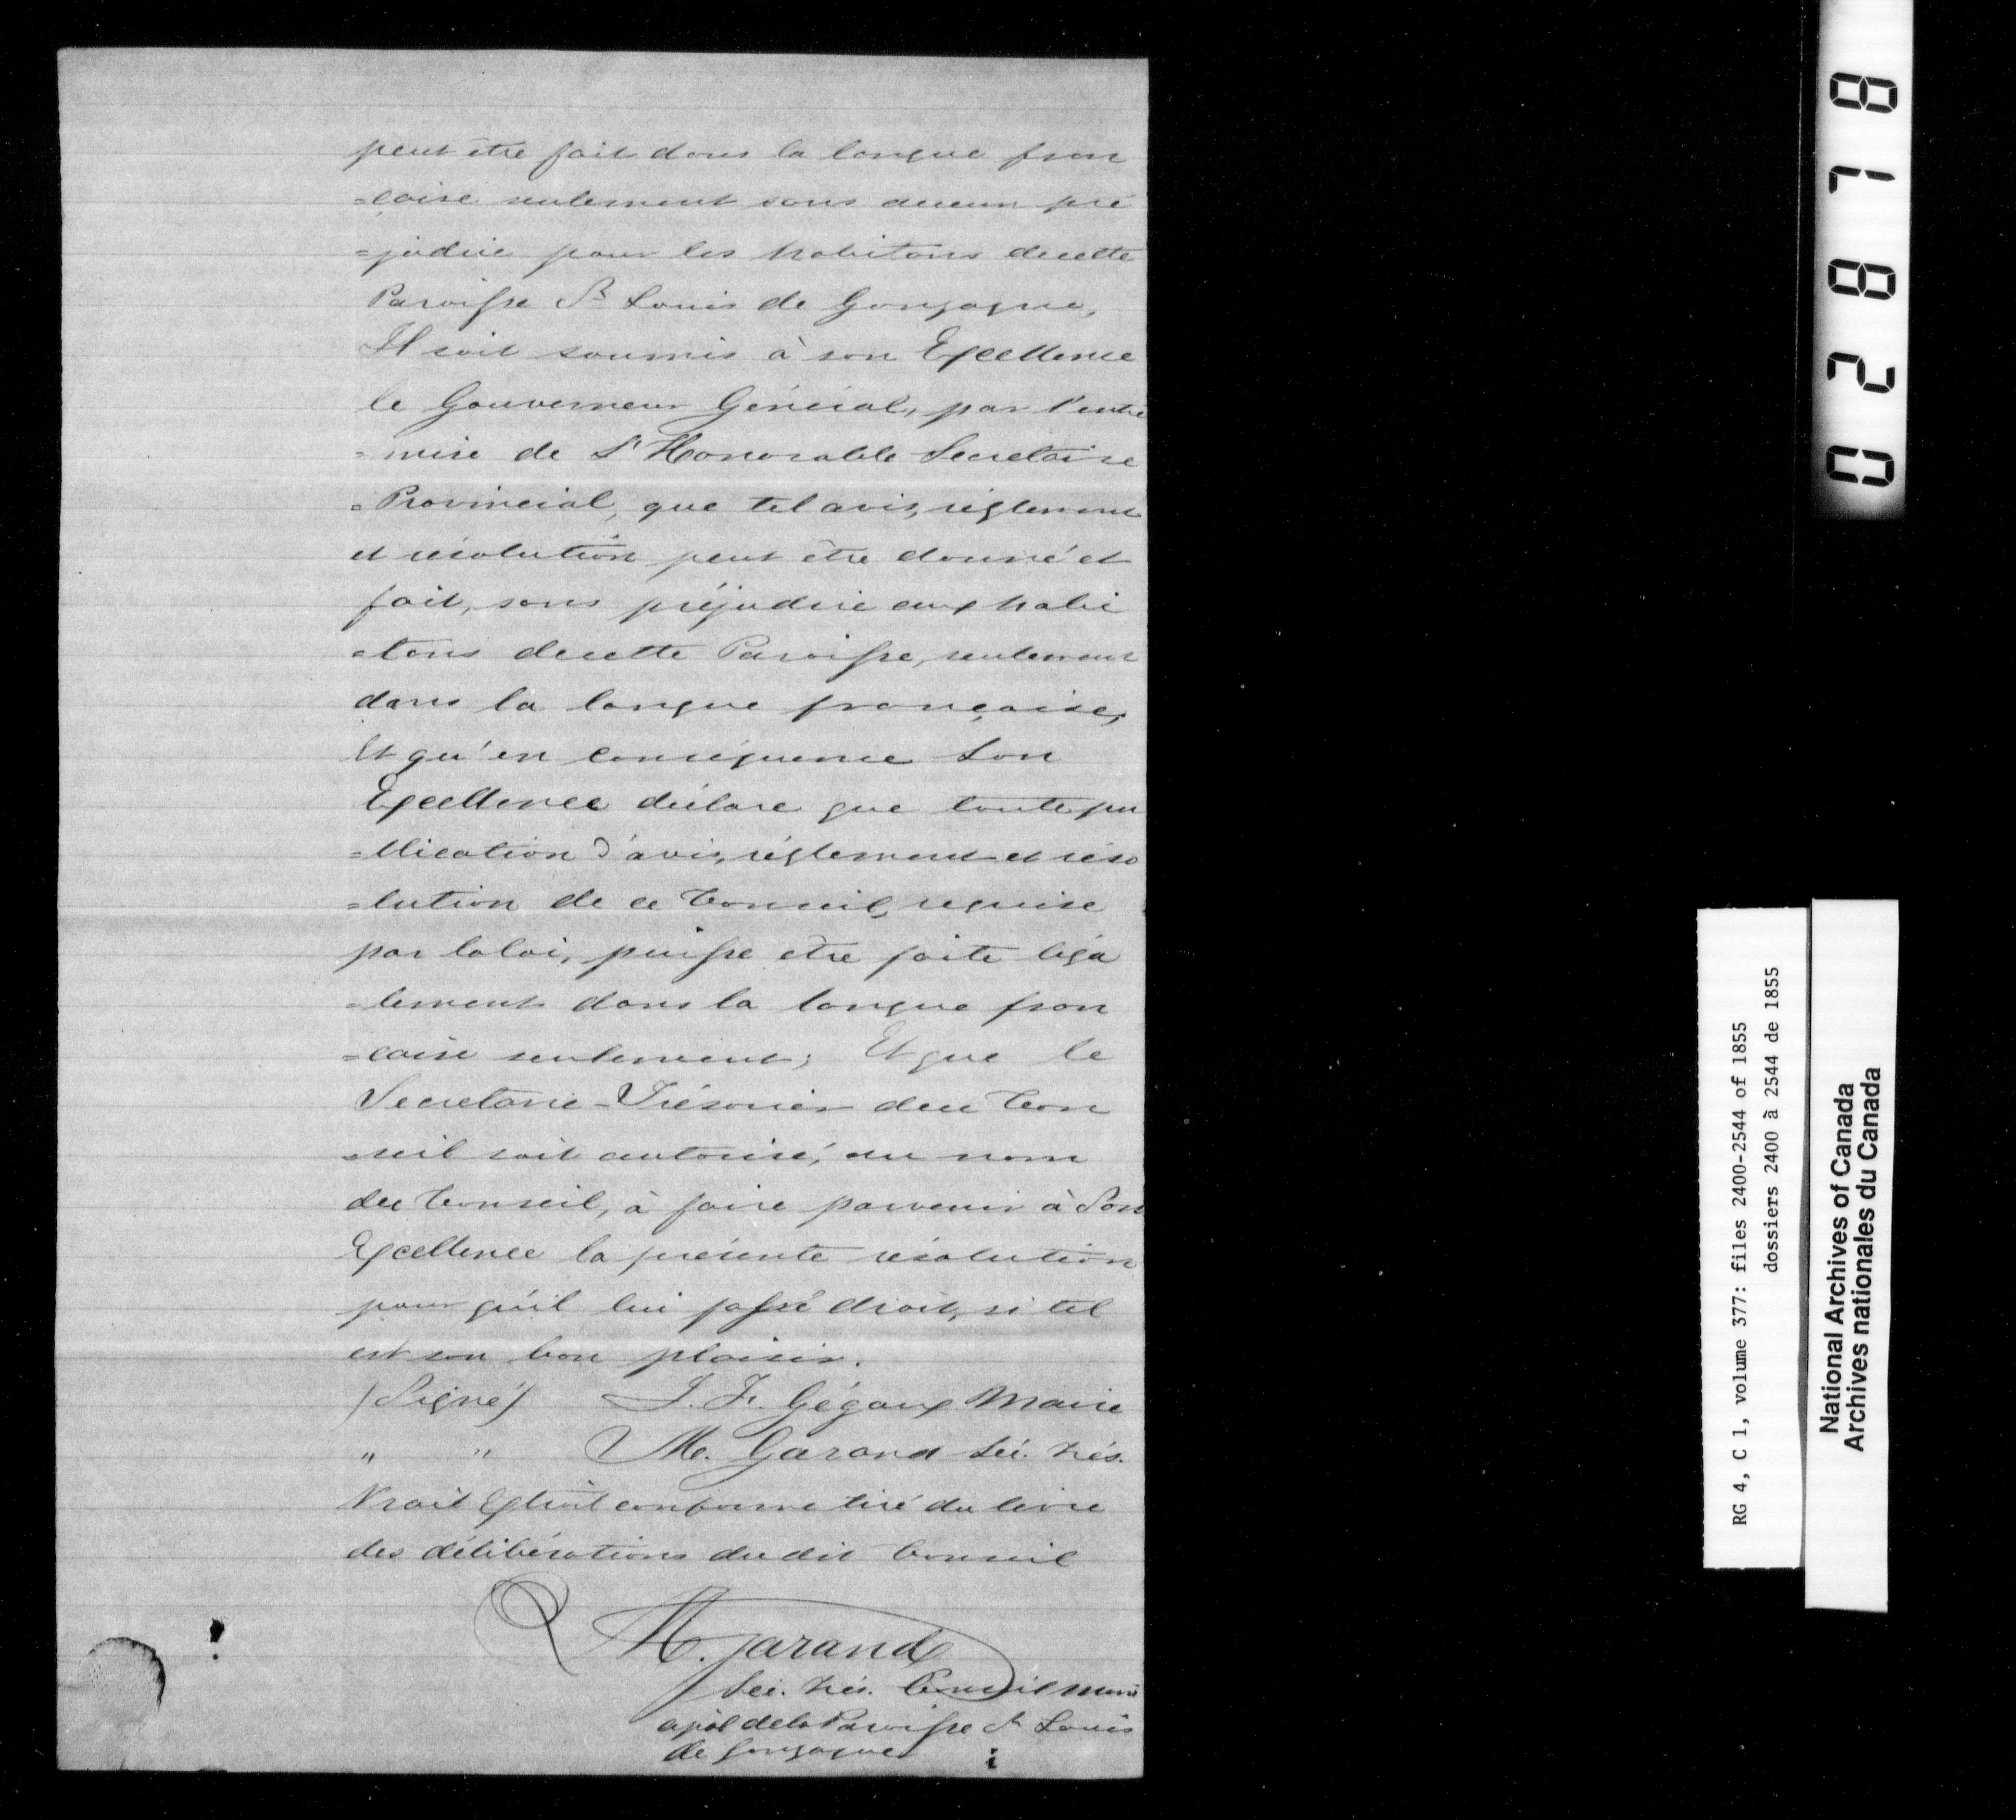 peut être fait dans la langue fran
=çaise seulement sans aucun pré
=judice pour les habitans decette
Paroisse St Louis de Gonzague,
Il soit soumis à son Excellence
le Gouverneur Général, par l'entre
=mise de L'Honorable Secretaire
=Provincial, que tel avis, réglement
et résolution peut être donné et
fait, sans préjudice aux habi
=tans decette Paroisse, seulement
dans la langue française,
Et qu'en conséquence Son
Excellence déclare que toute pu
=blication d'avis, réglement et réso
=lution de ce Conseil, requise
par laloi, puisse etre faite léga
=lement dans la langue fran
=caise seulement; Et que le
Secretaire-Trésorier dece Con
=seil soit autorisé, au nom
du Conseil, à faire parvenir à Son
Excellence la présente résolution
pour qu'il lui fasse droit, si tel
est son bon plaisir.
(Signé) J. F. Gégoux Maire
" " M. Garand Séc. trés.
Vrait Extrait conforme tiré du livre
des délibérations du dit Conseil
M. Garand
Séc. trés. Conseil muni
cipal dela Paroisse St Louis
de Gonzague
0 2 8 7 8
RG 4, C 1, volume 377: files 2400-2544 of 1855
dossiers 2400 à 2544 de 1855
National Archives of Canada
Archives nationales du Canada